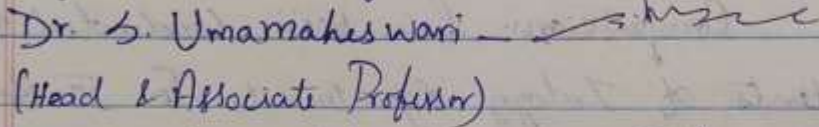 Dr. S. Umamaheswari -
(Head & Associate Professor)